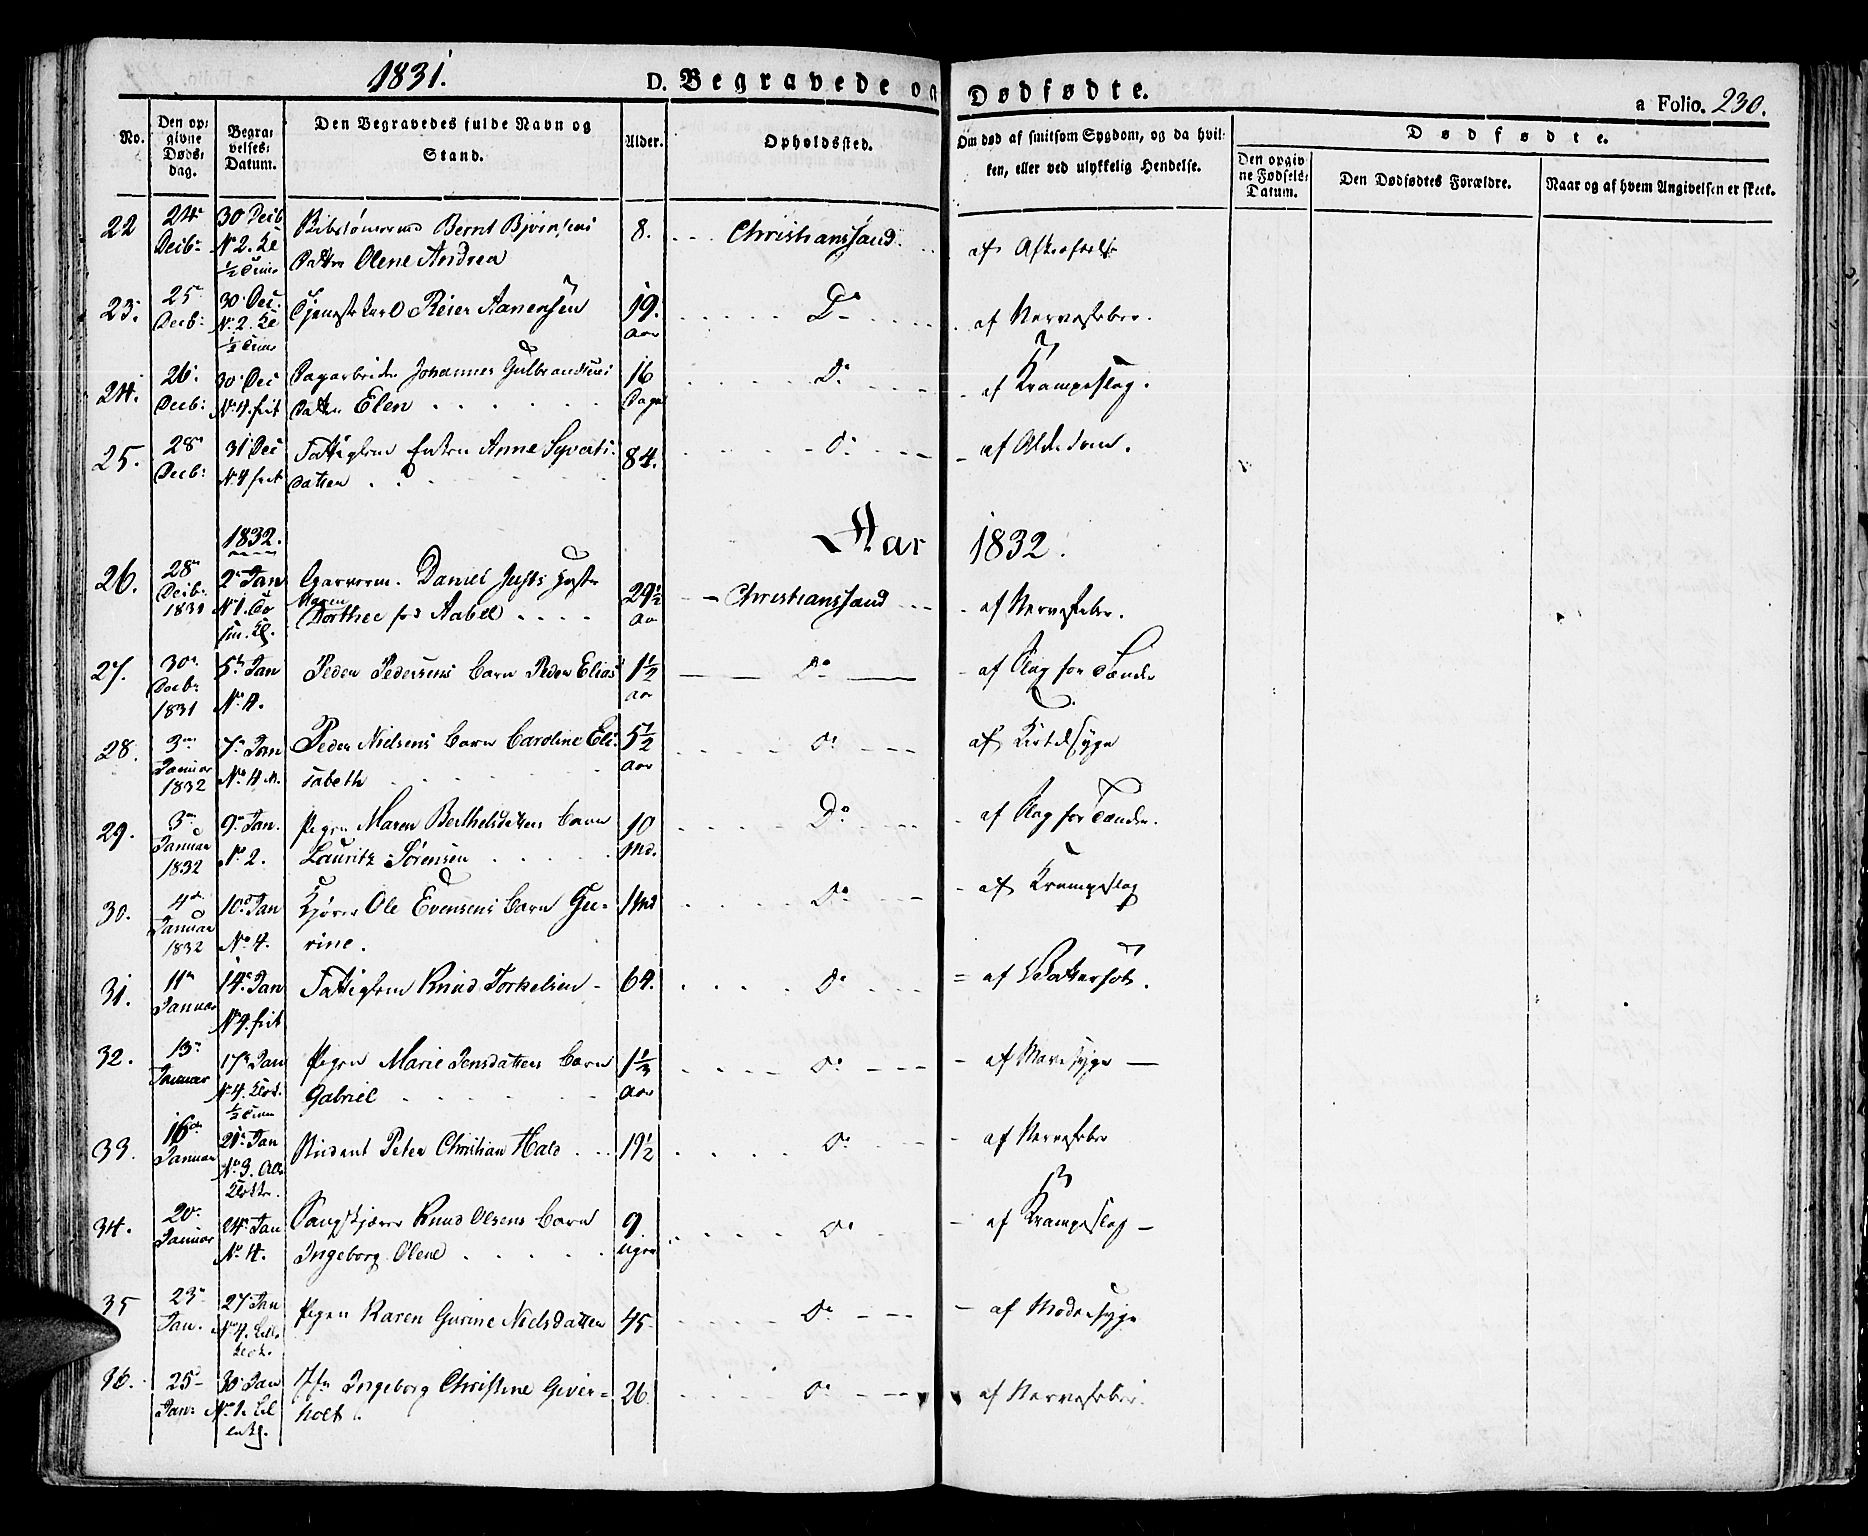 1831.
D. Begravede og Dødfødte.
a Folio. 230.
No.
Den op-
givne
Døds-
dag.
Begra-
velses-
Datum.
Den Begravedes fulde Navn og
Stand.
Alder.
Opholdssted.
Om død af smitsom Sygdom, og da hvil-
ken, eller ved ulykkelig Hendelse.
Dødfødte.
Den opgiv-
ne Fødsels-
Datum.
Den Dødfødtes Forældre.
Naar og af hvem Angivelsen er skeet.
22 24 Decb: 30 Decb No 2. Bernt
Datter Olene Andrea 8. Christianssand. af
23. 25 Decb: 30 Dec. No 2. Reier Aanensen 19. Aar Do af Nervefeber.
24. 26. Decb: 30 Dec No 4. frit Dagarbeider Johannes Gulbrandsens
Datter Elen 16 Dage Do af Krampeslag.
25. 28 Decb: 31 Dec No 4 frit Fattiglem Enken Anne Syverts-
datter 84. Do af Alderdom.
Aar 1832.
1832.
26. 28 Decb: 1831 2 Jan No 1. Garverm. Daniel Justs
Maren
Dorthee fød Aabel 29½ Aar Christianssand af Nervefeber.
27. 30 Decb: 1831 5 Jan No 4. Peder Pedersens Barn Peder Elias 1½ Aar Do af Slag for Tænder
28. 3 Januar 1832 7 Jan No 4 Peder Nielsens Barn Caroline Eli-
sabeth 5½ Aar Do af Kirtelsyge
29. 3 Januar 1832 9 Jan. No 2. Pigen Maren Berthelsdatters Barn
Lauritz Sørensen 10 Md. Do af Slag for Tænder.
30. 4 Januar 1832 10 Jan No 4. Kjører Ole Evensens Barn Gu-
rine. 1 Md Do af Krampeslag
31. 11 Januar 14 Jan No 4. frit Fattiglem Knud Torkelsen 64. Do af
32. 13 Januar 17 Jan No 4. Pigen Marie Jensdatters Barn
Gabriel Aar Do af
33. 16 Januar 21 Jan No 3. Student Peter Christian Hald 19½ Do af Nervefeber
34. 20 Januar 24 Jan No 4. Knud Olsens Barn
Ingeborg Olene 9 Uger Do af Krampeslag
35 23 Jan. 27 Jan No 4. Pigen Karen Gurine Nielsdatter 45. Do af Modersyge
36. 25 Jan: 30 Jan No 1. Jfr Ingeborg Christine Gever-
holt 26 Do af Nervefeber.